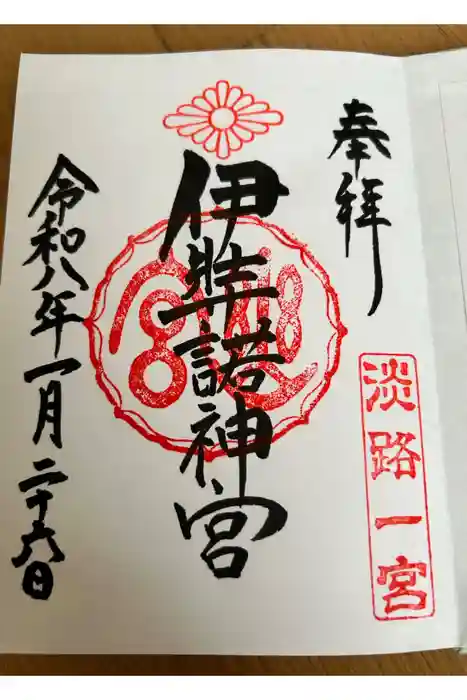 奉拝
淡路一宮
伊弉諾神宮
令和八年一月二十六日